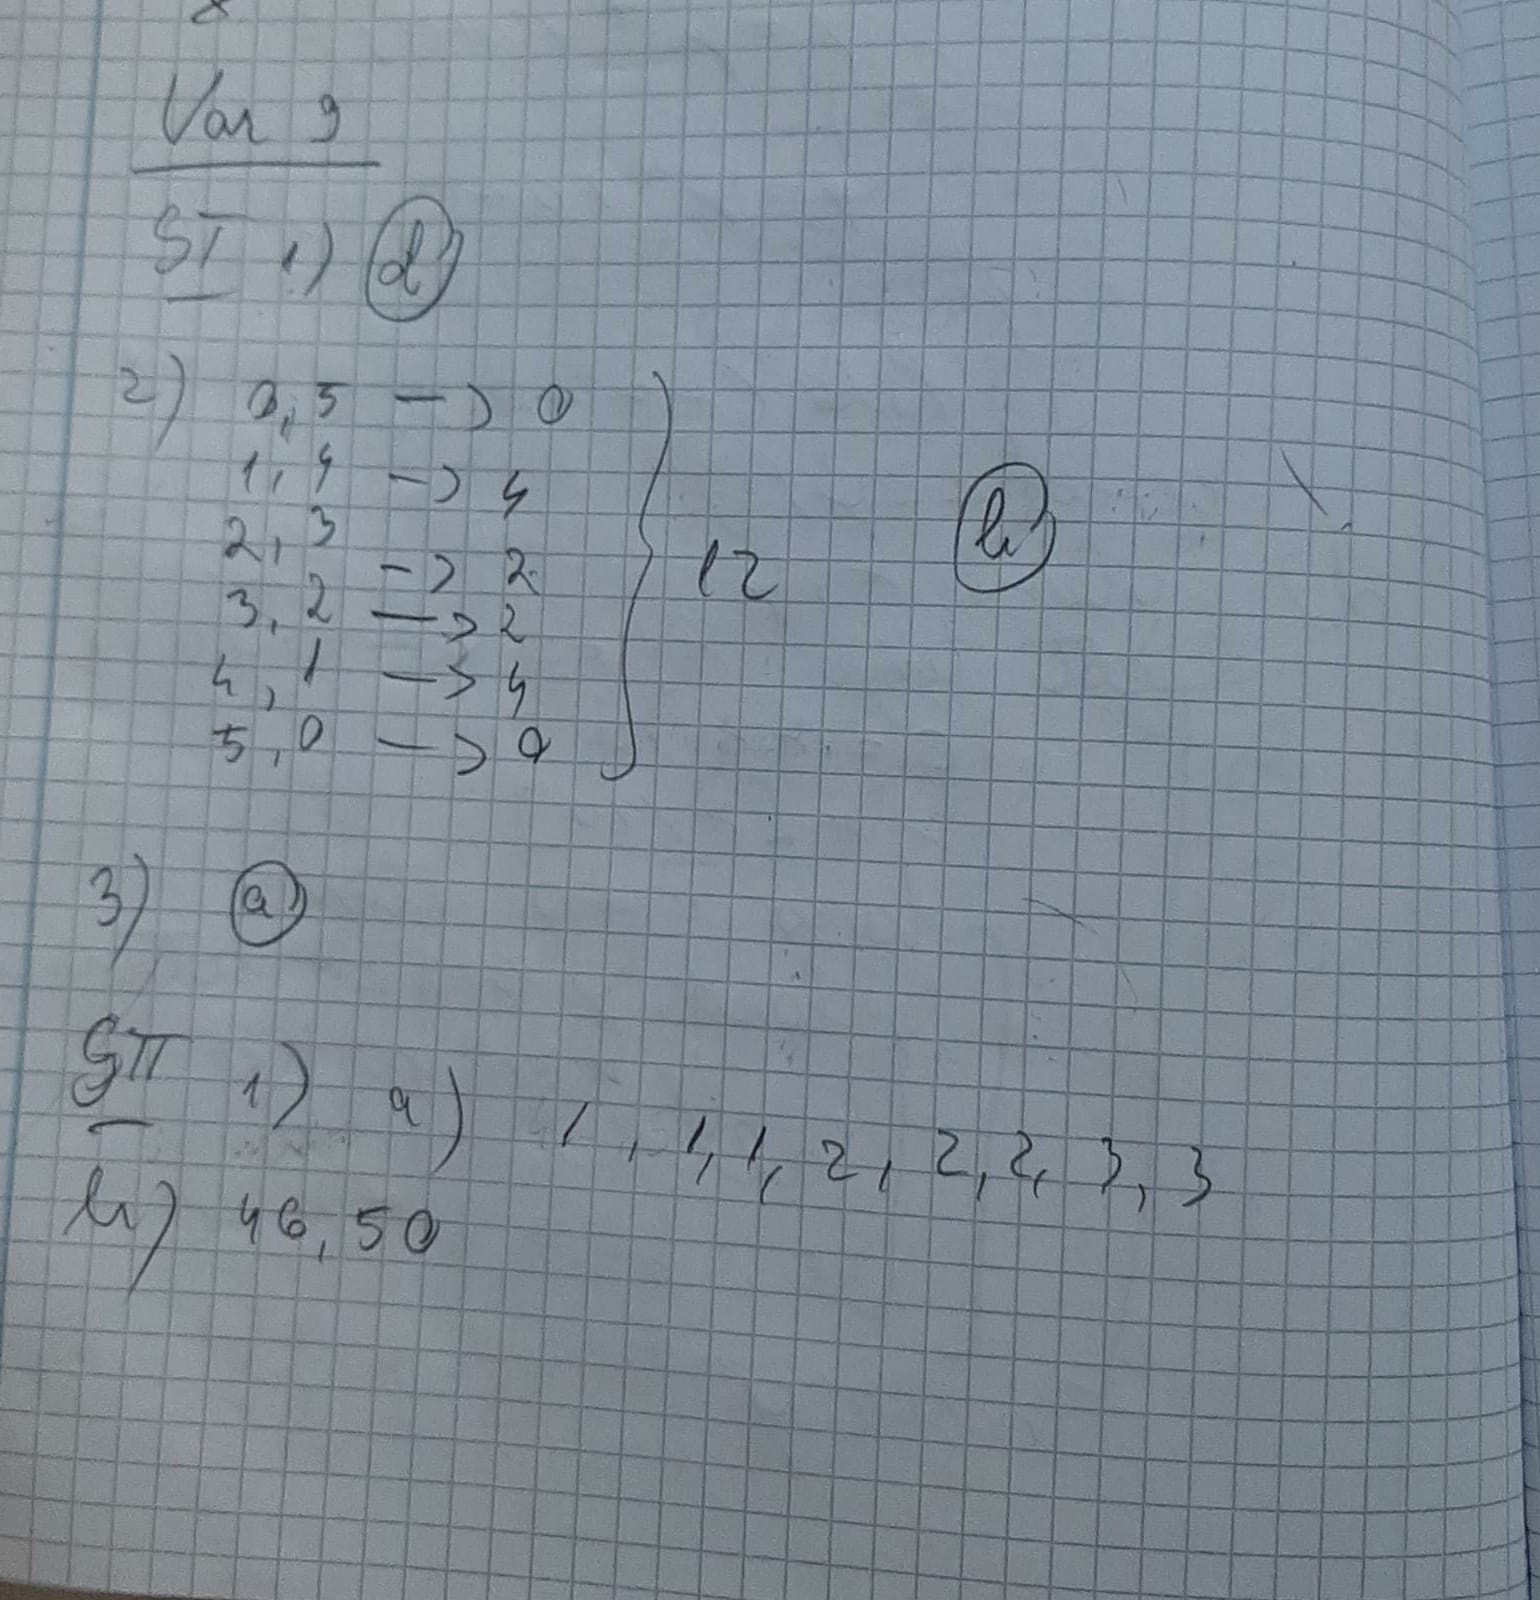 Var 9
SI 1) d
2) 0,5 -> 0
1,4 -> 4
2,3 -> 2
3,2 -> 2
4,1 -> 4
5,0 -> 0
12 b
3) a
SII 1) a) 1, 1, 1, 2, 2, 2, 3, 3
b) 46, 50